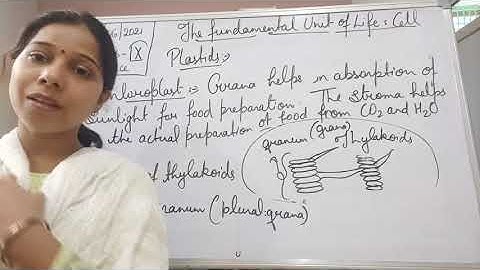 6/2021
IX
The Fundamental Unit of Life: Cell
Plastids:-
Chloroplast:- Grana helps in absorption of
sunlight for food preparation. The stroma helps
the actual preparation of food from CO2 and H2O
granum (grana)
of thylakoids
of thylakoids
granum (plural:grana)